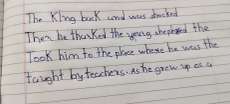 The King back and was shocked
Then he thanked the young shepherd the
Took him to the place where he was the
taught by teachers. As he grew up as a